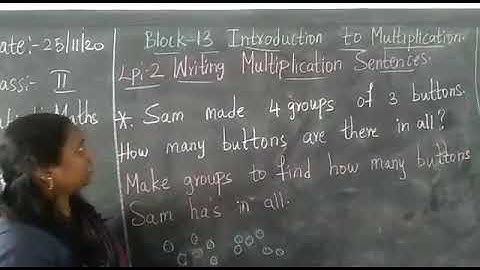 Date:- 25/11/20
Class:- II
Maths
Block-13 Introduction to Multiplication.
Lpi-2 Writing Multiplication Sentences.
*. Sam made 4 groups of 3 buttons.
How many buttons are there in all?
Make groups to find how many buttons
Sam has in all.